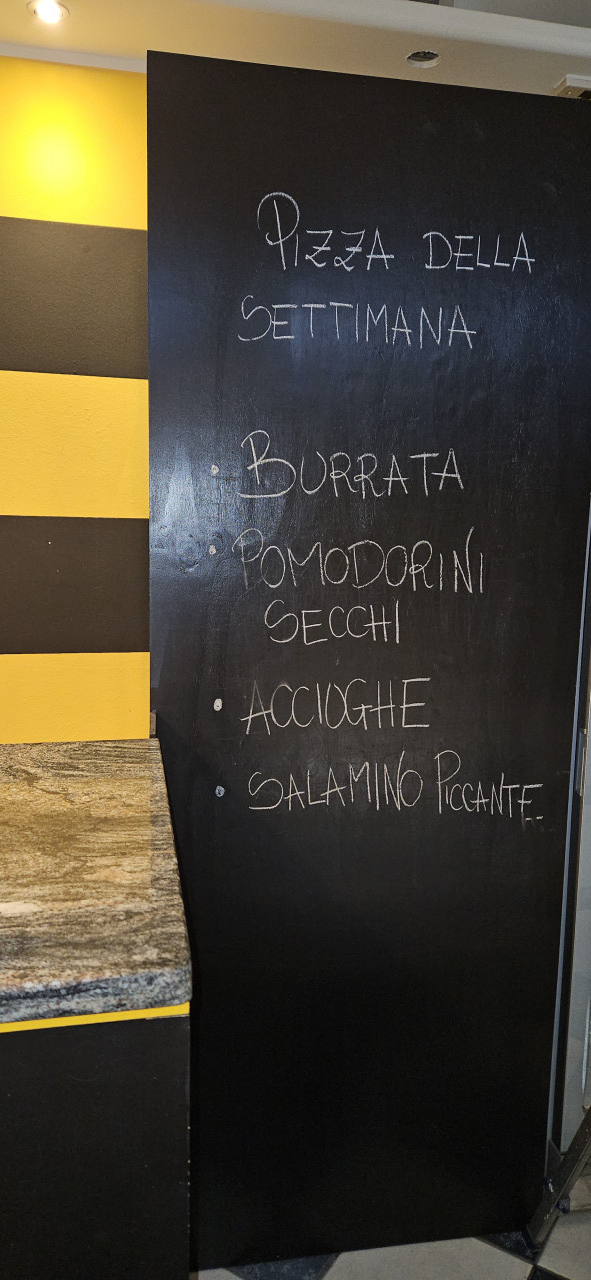 PIZZA DELLA
SETTIMANA
• BURRATA
• POMODORINI
SECCHI
• ACCIOGHE
• SALAMINO PICCANTE